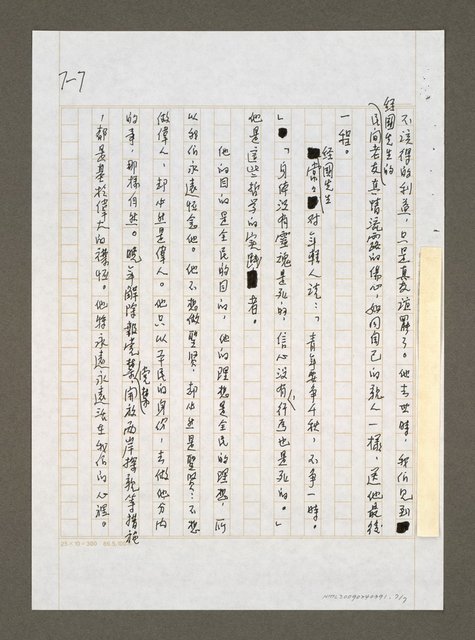 7-7
不該得的利益，只是真友誼罷了。他去世時，我們見到
經國先生的民間老友真情流露的傷心，如同自己的親人一樣，送他最後
一程。
經國先生常對年輕人說：「青年要爭千秋，不爭一時。
」「身体沒有靈魂是死的，信心沒有行為也是死的。」
他是這些哲學的實踐者。
他的目的是全民的目的，他的理想是全民的理想，所
以我們永遠懷念他。他不想做聖賢，却必然是聖賢；不想
做偉人，却必然是偉人。他只以平民的身份，去做他分內
的事，那樣自然。晚年解除報禁、黨禁，開放兩岸探親等措施
，都是基於偉大的襟懷。他將永遠永遠活生我們的心裡。
25×10=300
NMTL20090240091 7/7